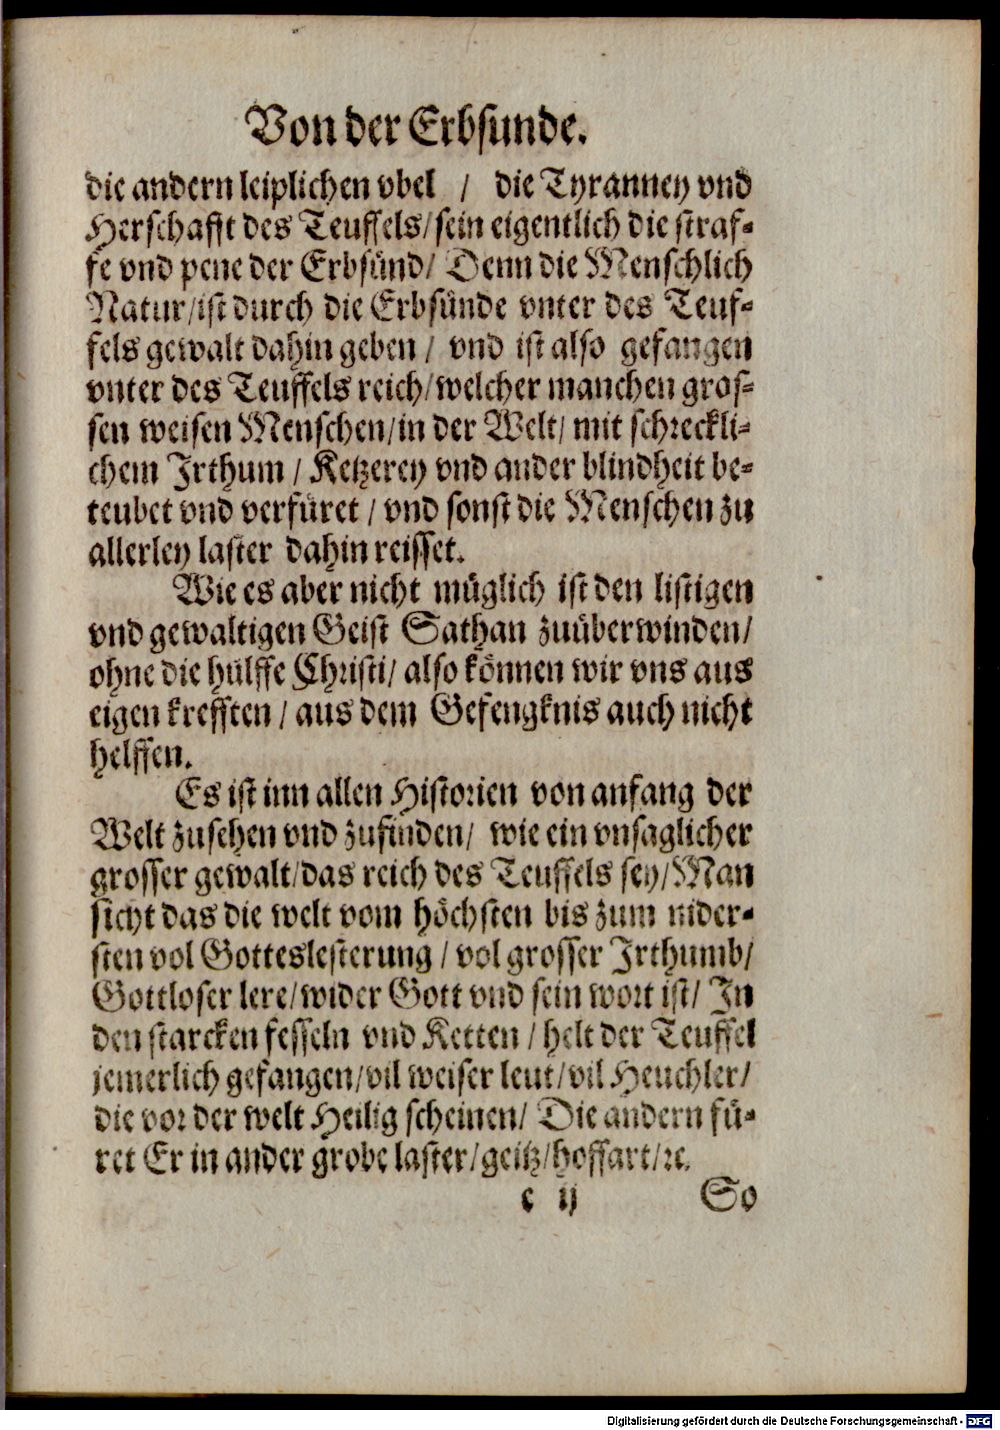 Von der Erbsunde.
die andern leiplichen vbel / die Tyranney vnd
Herschafft des Teuffels/sein eigentlich die straf-
fe vnd pene der Erbsünd/ Denn die Menschlich
Natur/ist durch die Erbsünde vnter des Teuf-
fels gewalt dahin geben / vnd ist also gefangen
vnter des Teuffels reich/welcher manchen gros-
sen weisen Menschen/in der Welt/ mit schreckli-
chem Irthum / Ketzerey vnd ander blindheit be-
teubet vnd verfüret / vnd sonst die Menschen zu
allerley laster dahin reisset.
Wie es aber nicht müglich ist den listigen
vnd gewaltigen Geist Sathan zuüberwinden/
ohne die hülffe Christi/ also können wir vns aus
eigen krefften / aus dem Gefengknis auch nicht
helffen.
Es ist inn allen Historien von anfang der
Welt zusehen vnd zufinden/ wie ein vnsaglicher
grosser gewalt/das reich des Teuffels sey/Man
sicht das die welt vom höchsten bis zum nider-
sten vol Gotteslesterung / vol grosser Irthumb/
Gottloser lere/wider Gott vnd sein wort ist/ In
den starcken fesseln vnd Ketten / helt der Teuffel
jemerlich gefangen/vil weiser leut/vil Heuchler/
die vor der welt Heilig scheinen/ Die andern fü-
ret Er in ander grobe laster/geitz/hoffart/ꝛc.
c ij So
Digitalisierung gefördert durch die Deutsche Forschungsgemeinschaft - DFG